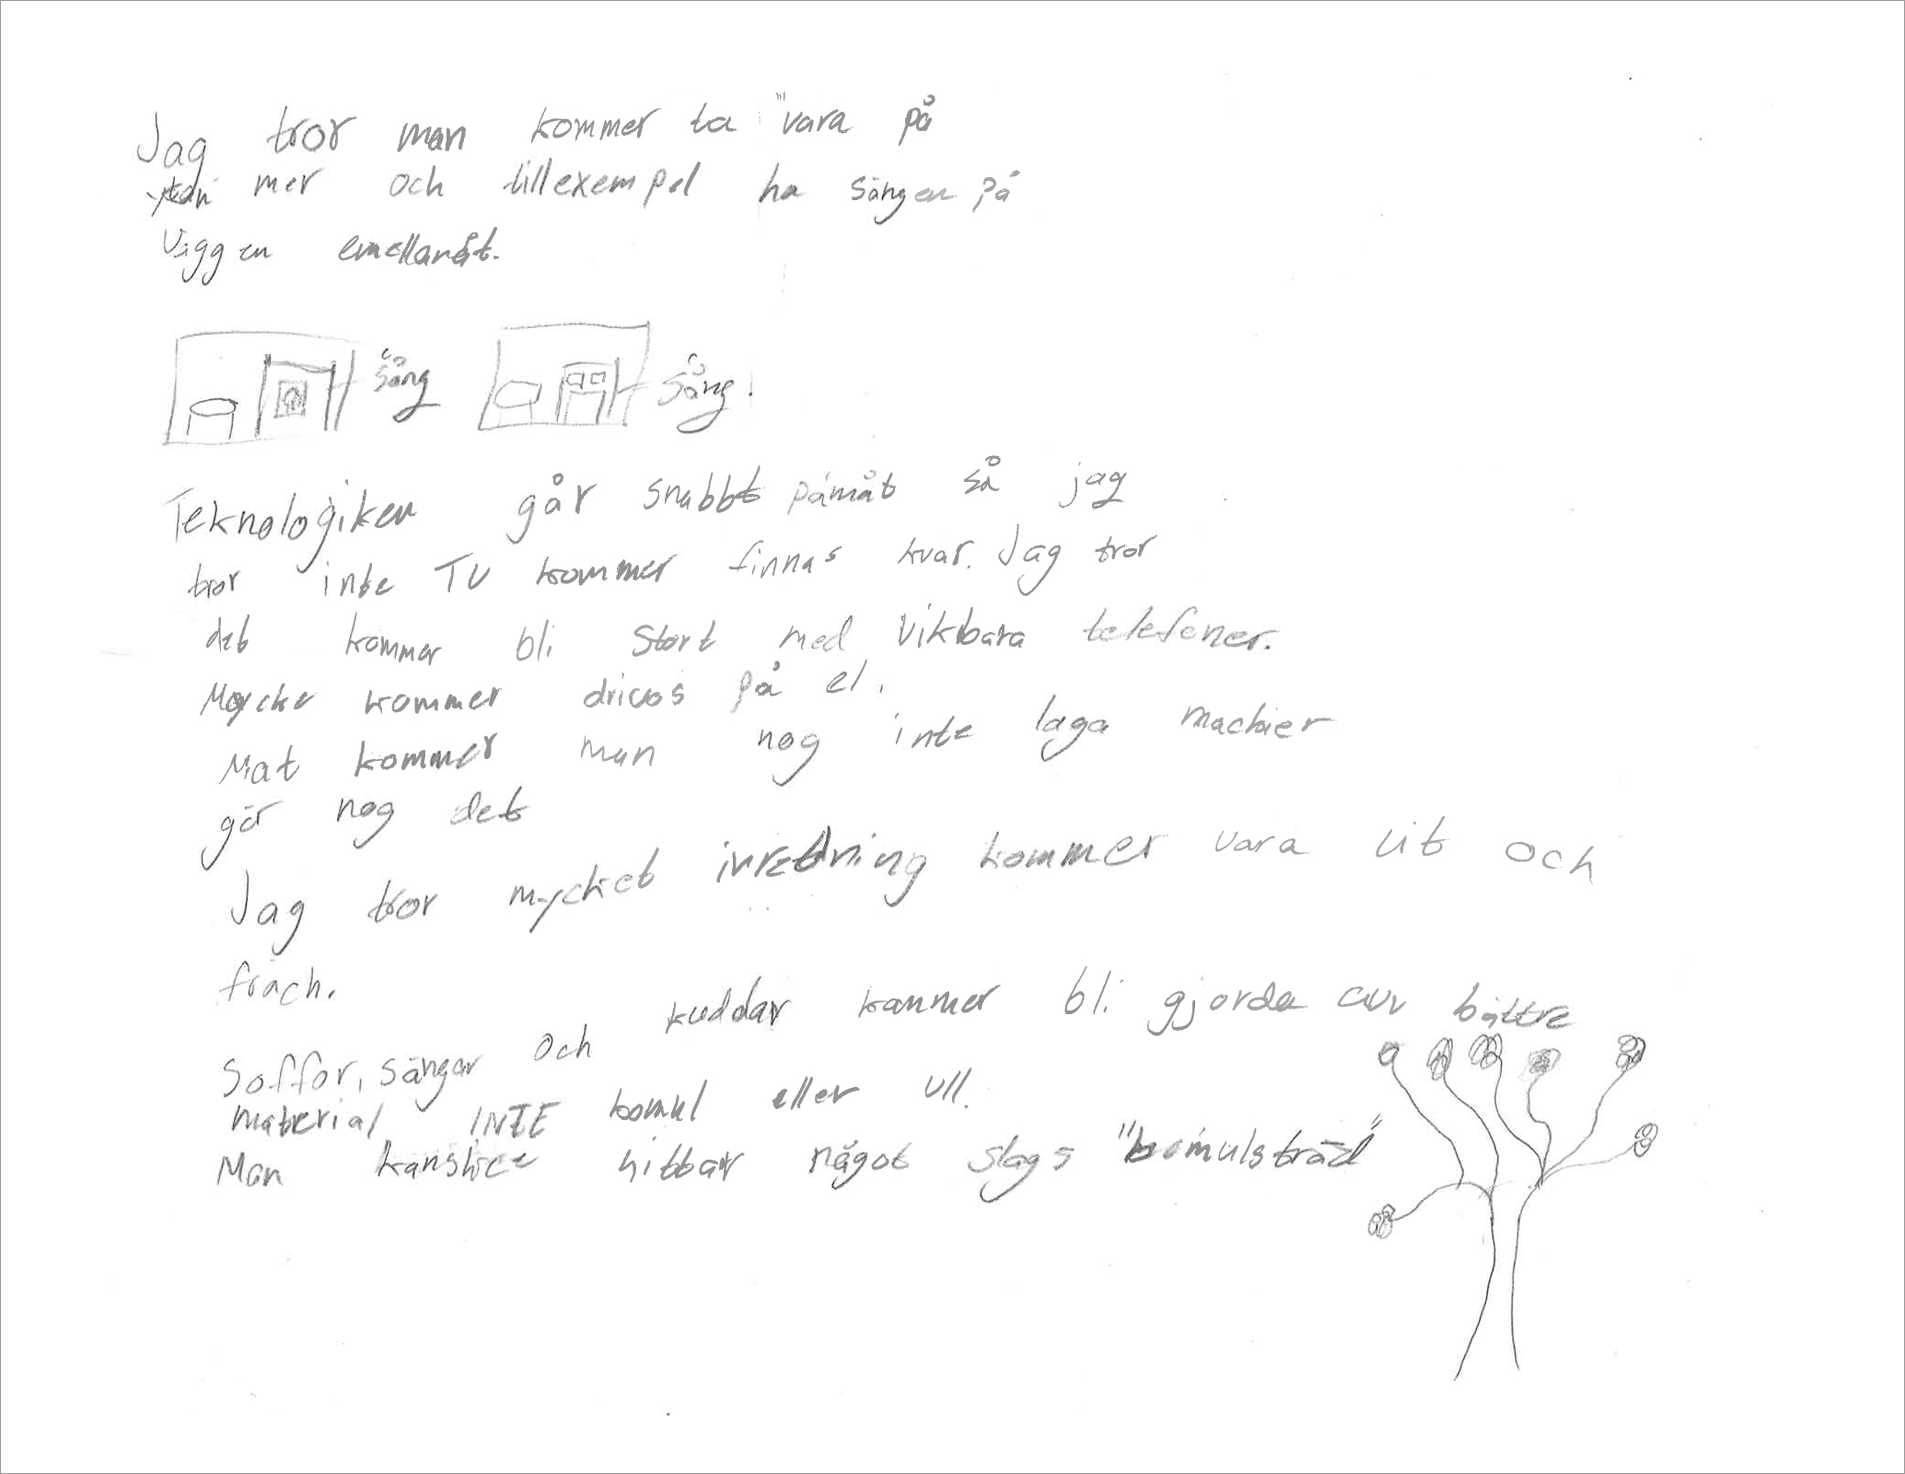 Jag tror man kommer ta "vara på
ytan mer och tillexempel ha sängen på
väggen emellanåt.
säng säng.
Teknologiken går snabbt påmåt så jag
tror inte TV kommer finnas kvar. Jag tror
det kommer bli stort med vikbara telefoner.
Mycke kommer drivas på el.
Mat kommer man nog inte laga machier
gör nog det
Jag tror mycket inredning kommer vara vit och
fräch.
Soffor, sängar och kuddar kommer bli gjorda av bättre
material INTE bomul eller ull.
Man kanshce hittar något slags "bomulsträd"